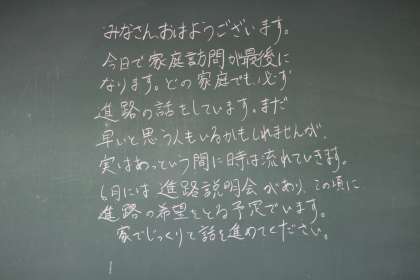 みなさん、おはようございます。
今日で家庭訪問が最後に
なります。どの家庭でも、必ず
進路の話をしています。まだ
早いと思う人もいるかもしれませんが、
実はあっという間に時は流れていきます。
6月には進路説明会があり、この頃に
進路の希望をとる予定でいます。
家でじっくりと話を進めてください。